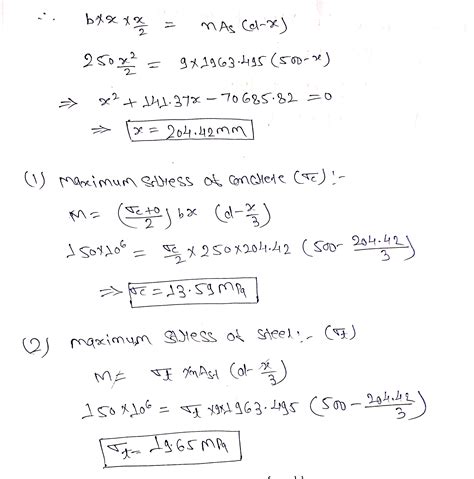 ∴ b×x×x/2 = nAs (d-x)
250 x²/2 = 9×1963.495 (500-x)
⇒ x² + 141.37x - 70685.82 = 0
⇒ x = 204.42mm
(1) Maximum stress at concrete (σc) :-
M = (σc+0/2) bx (d-x/3)
150×10⁶ = σc/2 × 250×204.42 (500- 204.42/3)
⇒ σc = 13.59 MPa
(2) Maximum stress at steel :- (σt)
M = σt × nAst (d- x/3)
150×10⁶ = σt ×9×1963.495 (500- 204.42/3)
σt = 19.65 MPa